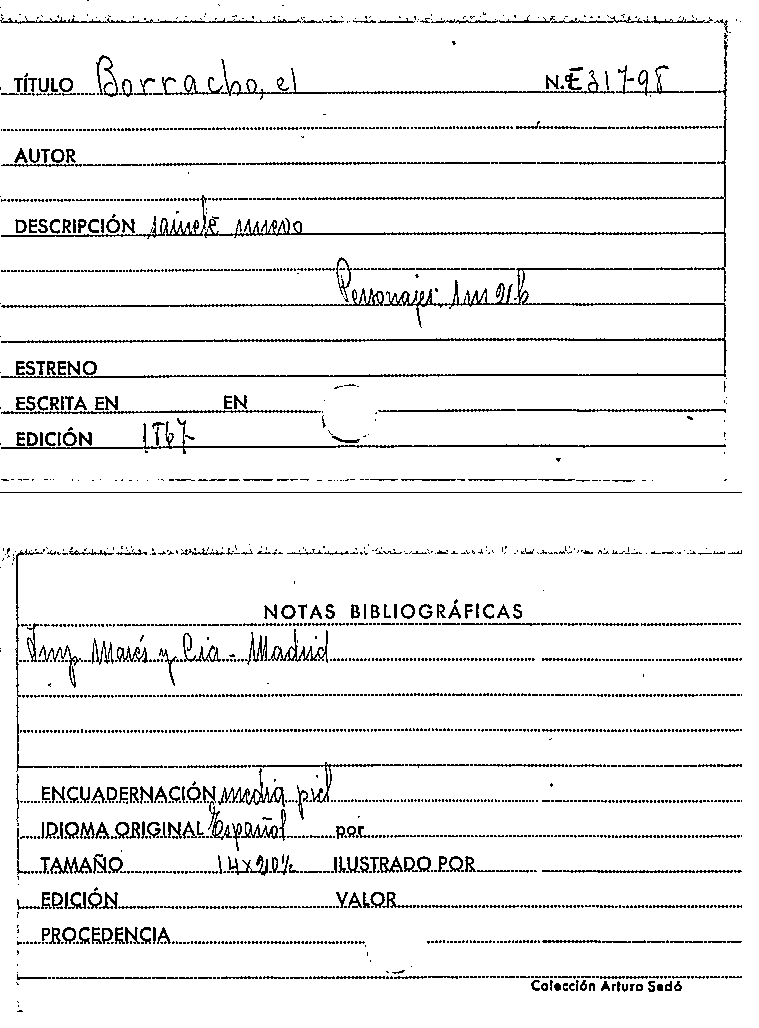 TÍTULO Borracho, el N.E317-98
AUTOR
DESCRIPCIÓN sainete nuevo
Personajes: 1m 2h
ESTRENO
ESCRITA EN EN
EDICIÓN 1867
NOTAS BIBLIOGRÁFICAS
Imp Marés y Cia - Madrid
ENCUADERNACIÓN media piel
IDIOMA ORIGINAL Español por
TAMAÑO 14x20½ ILUSTRADO POR
EDICIÓN VALOR
PROCEDENCIA
Colección Arturo Sedó